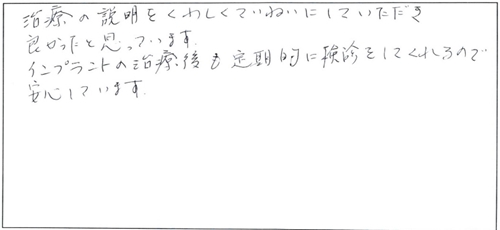 治療の説明をくわしくていねいにしていただき
良かったと思っています。
インプラントの治療後も定期的に検診をしてくれるので
安心しています。